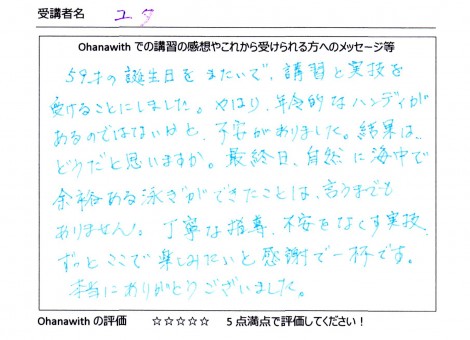 受講者名 ユタ
Ohanawith での講習の感想やこれから受けられる方へのメッセージ等
59才の誕生日をまたいで、講習と実技を
受けることにしました。やはり、年令的なハンディが
あるのではないかと、不安がありました。結果は、
どうだと思いますか。最終日、自然に海中で
余裕ある泳ぎができたことは、言うまでも
ありません。丁寧な指導、不安をなくす実技、
ずっとここで楽しみたいと感謝で一杯です。
本当にありがとうございました。
Ohanawith の評価 ☆☆☆☆☆ 5 点満点で評価してください！